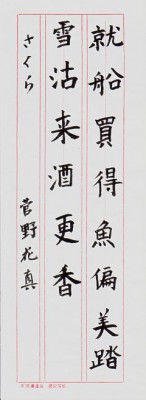 就船買得魚偏美踏
雪沽来酒更香
さくら
菅野花真